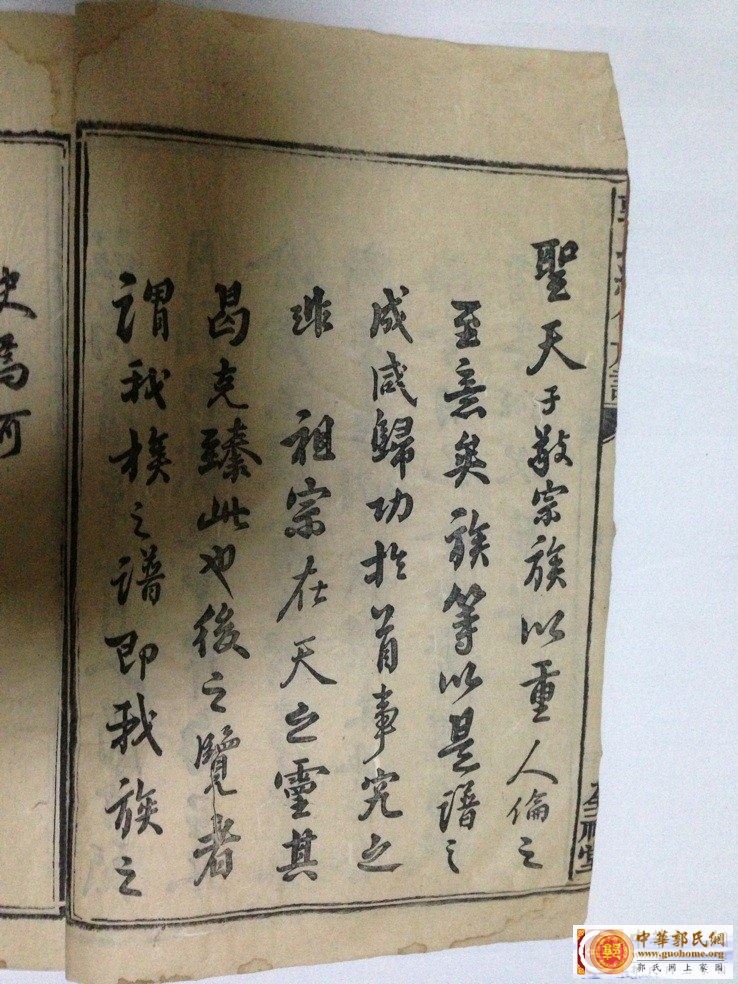 聖天子敦宗族以重人倫之
至意矣族等以是譜之
成咸歸功於首事究之
非祖宗在天之靈其
曷克臻此也後之覽者
謂我族之譜即我族之
史焉可
中華郭氏網
www.guohome.org
郭氏网上家园